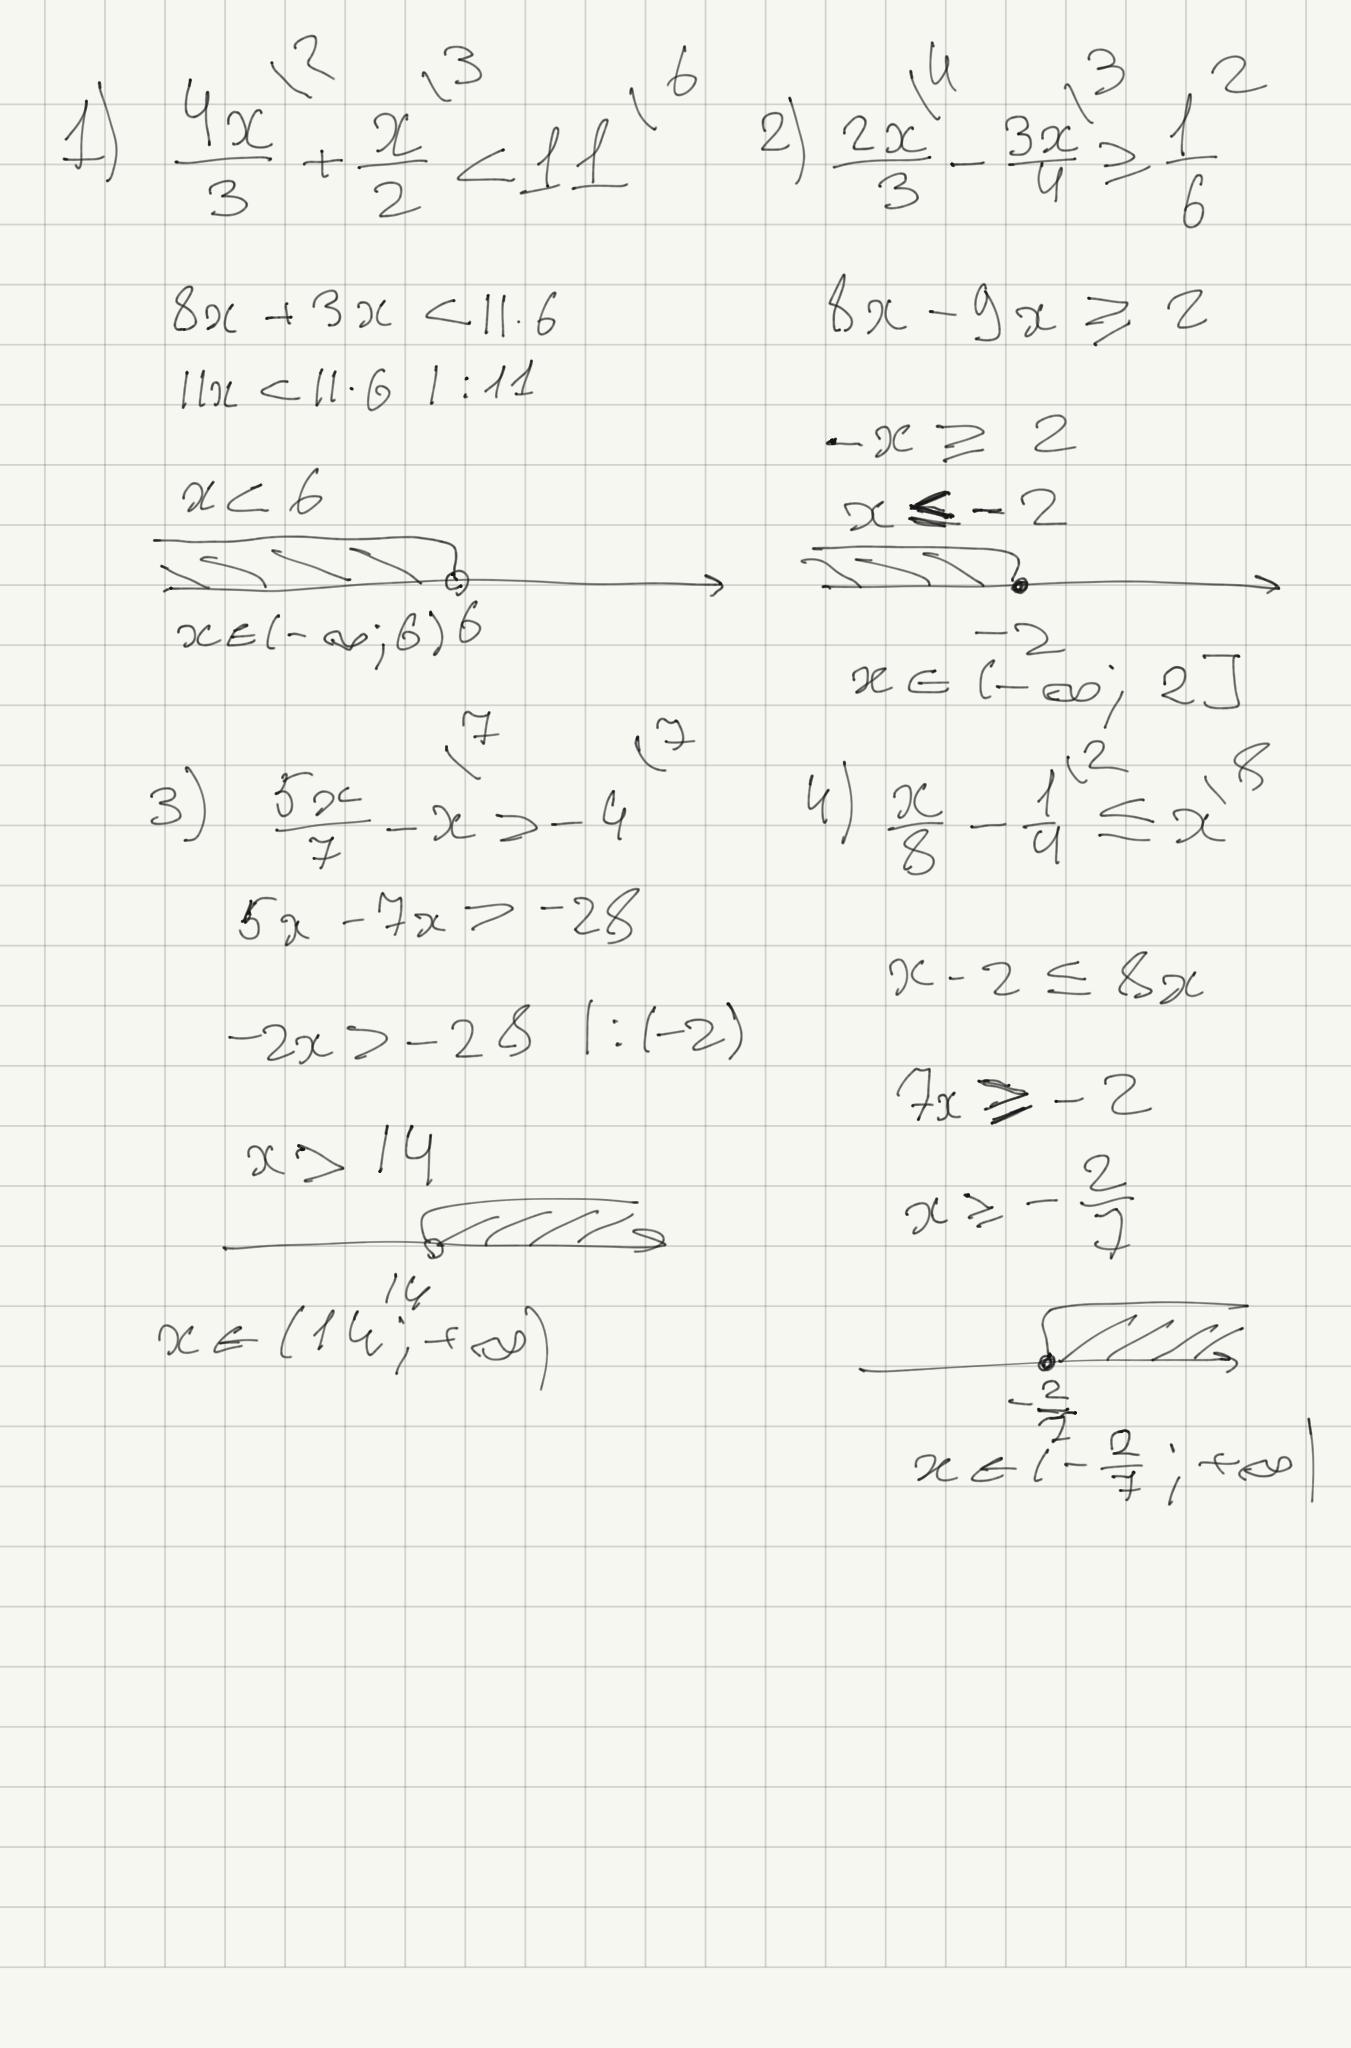 1) 4x/3 \2 + x/2 \3 < 11 \6
8x + 3x < 11·6
11x < 11·6 | :11
x < 6
6
x ∈ (-∞; 6)
2) 2x/3 \4 - 3x/4 \3 ≥ 1/6 2
8x - 9x ≥ 2
-x ≥ 2
x ≤ -2
-2
x ∈ (-∞; 2]
3) 5x/7 - x \7 > -4 \7
5x - 7x > -28
-2x > -28 | :(-2)
x > 14
14
x ∈ (14; +∞)
4) x/8 - 1/4 \2 ≤ x \8
x - 2 ≤ 8x
7x ≥ -2
x ≥ -2/7
-2/7
x ∈ (-2/7; +∞)